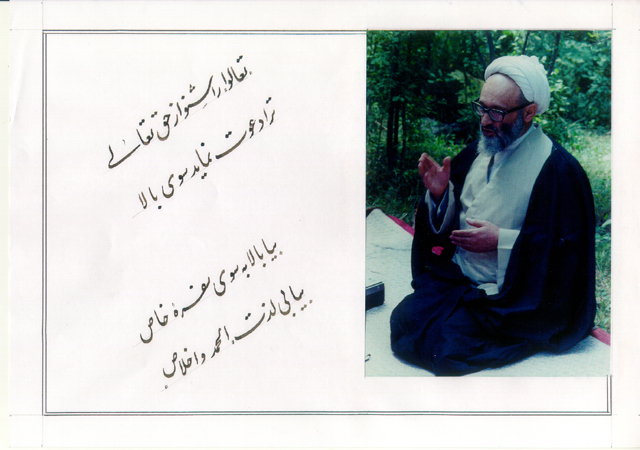 تعالوا را شنو از حق تعالی
ترا دعوت نماید سوی بالا
بیا بالا به سوی سفرهٔ خاص
بیابی لذت الحمد و اخلاص